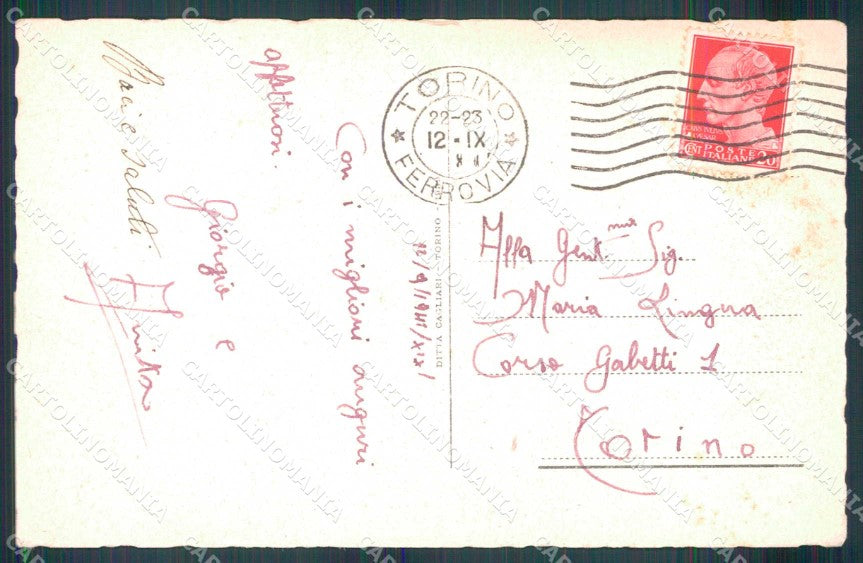 TORINO
22-23
12 - IX
FERROVIA
POSTE
ITALIANE
CENT 20
Alla Gent.ma Sig.
Maria Lingua
Corso Gabetti 1
Torino
DITTA CAGLIARI TORINO
12/9/1941/XIX
Con i migliori auguri
affettuosi.
Giorgio e
Baci e saluti
CARTOLINOMANIA